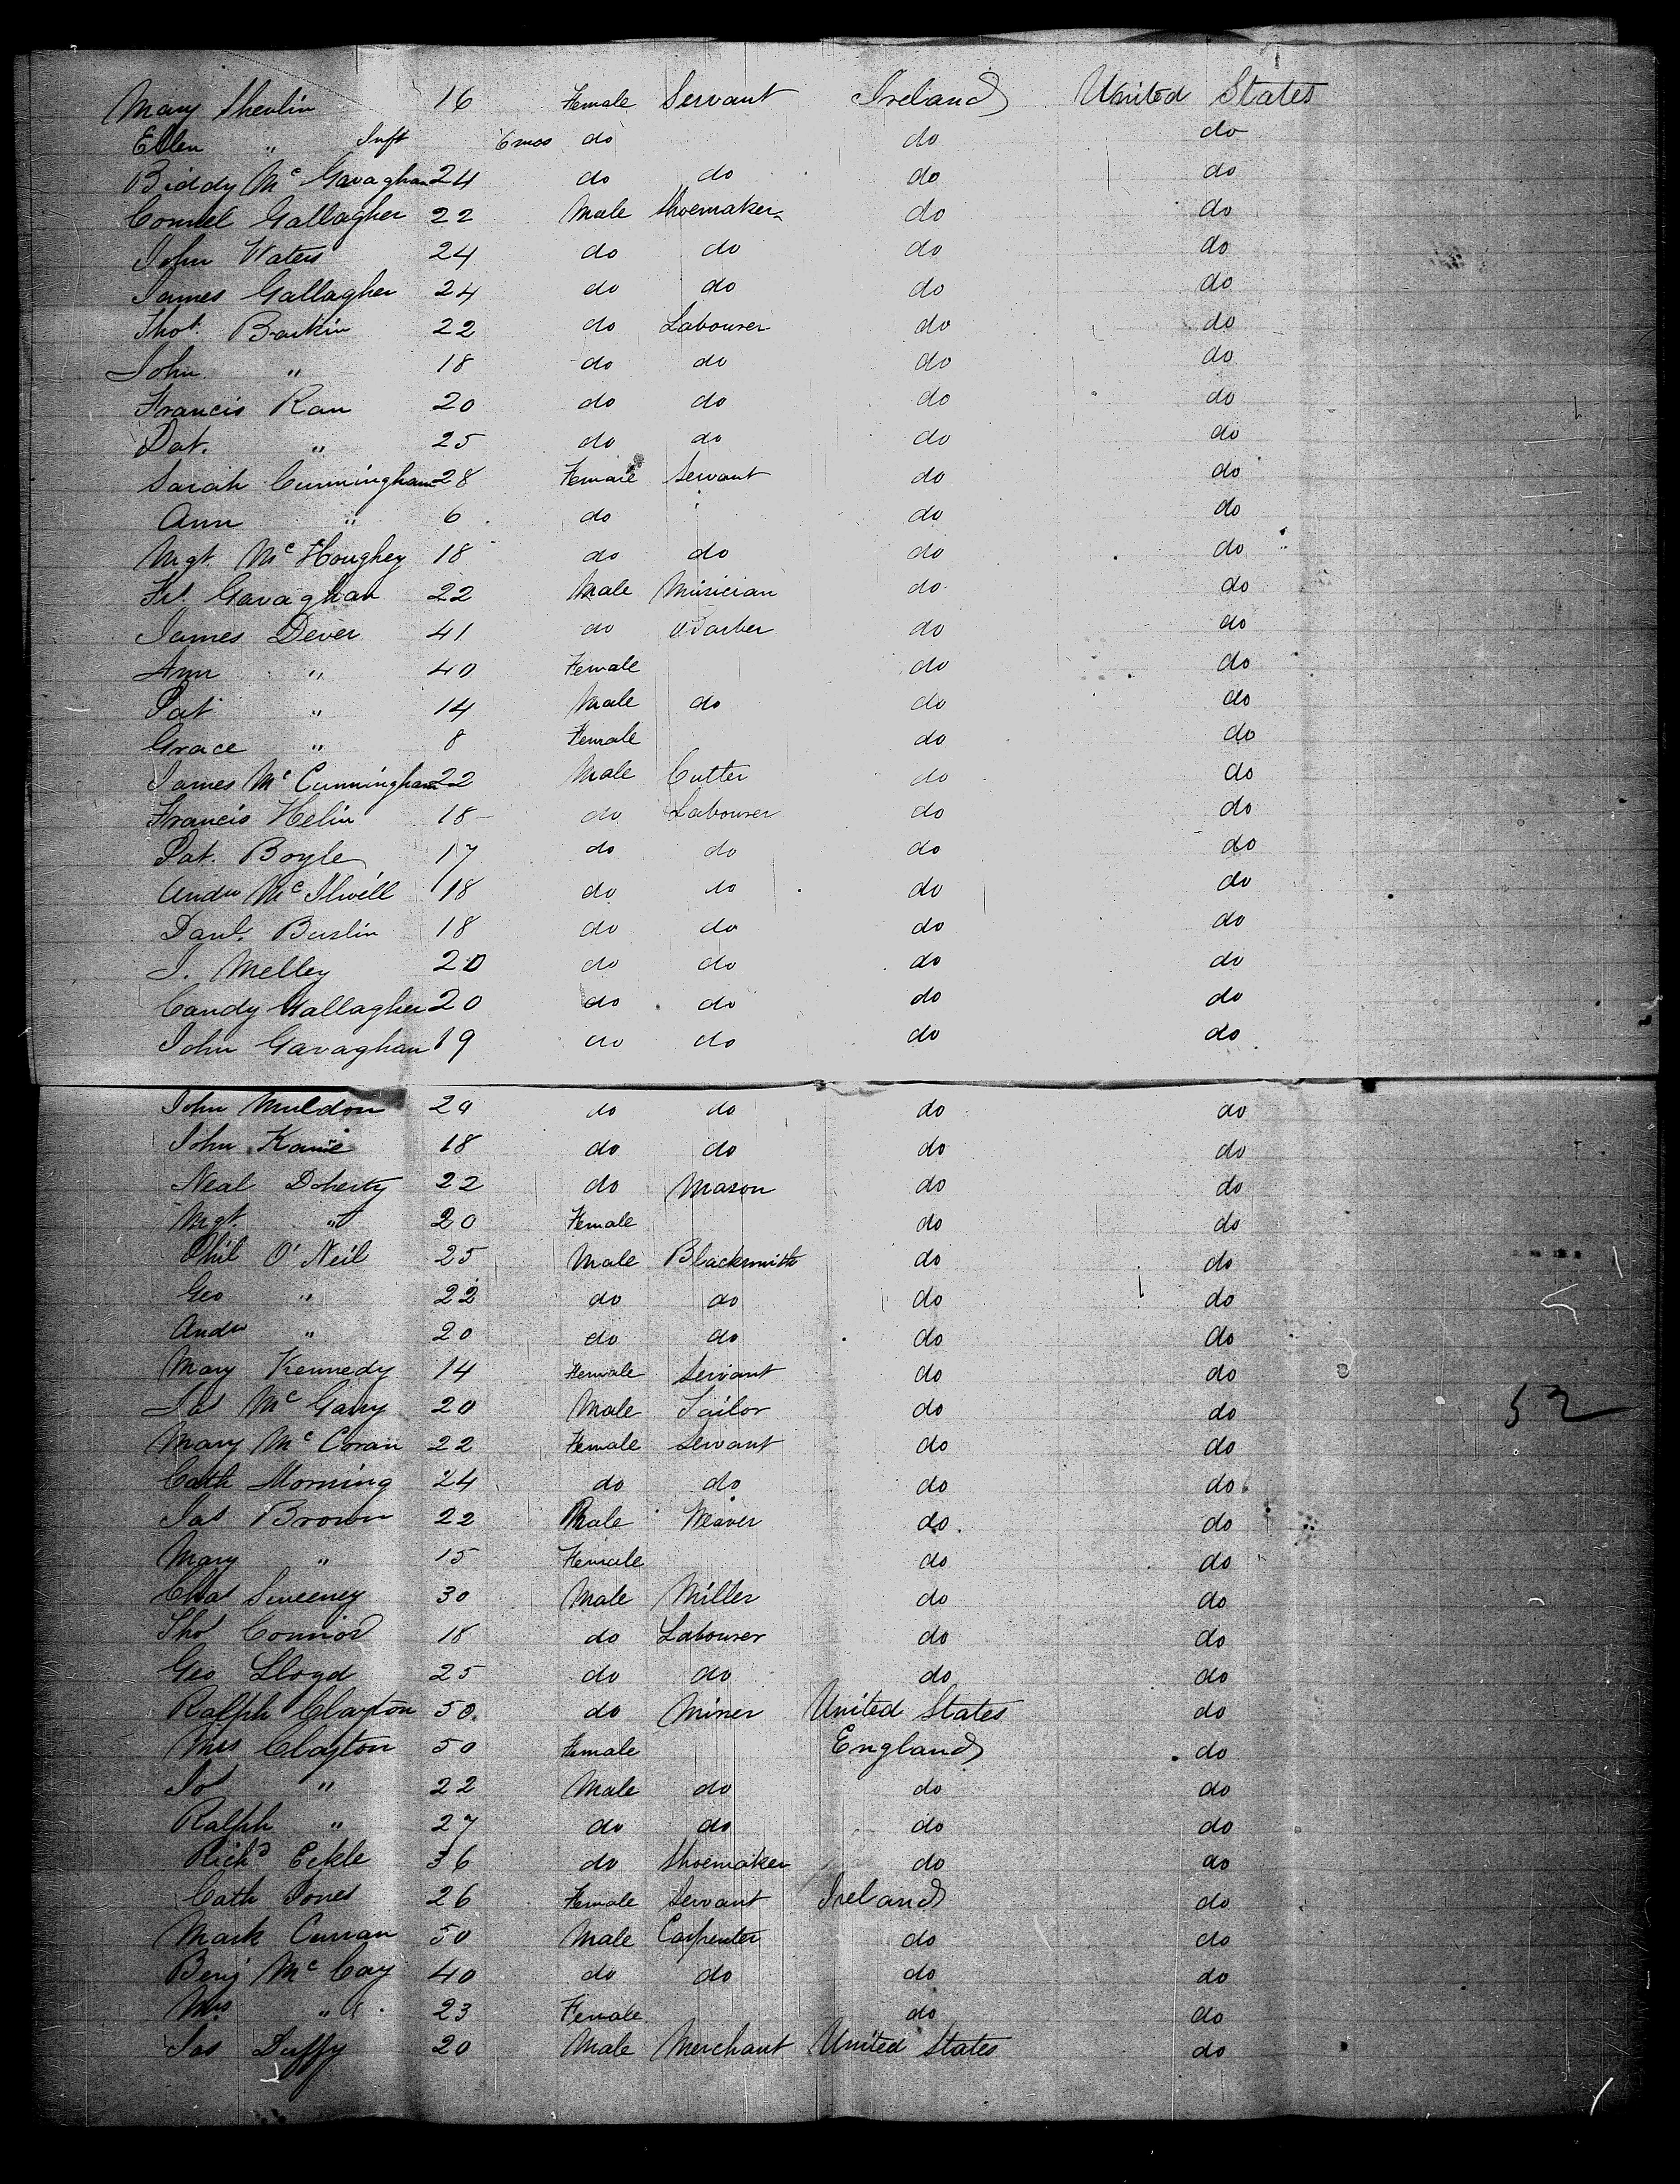 Mary Shevlin 16 Female Servant Ireland United States
Ellen " Inft 6 mos do do do
Biddy Mc Gavaghan 24 do do do do
Connel Gallagher 22 Male Shoemaker do do
John Waters 24 do do do do
James Gallagher 24 do do do do
Thos. 22 do Labourer do do
John " 18 do do do do
Francis Ran 20 do do do do
Pat. " 25 do do do do
Sarah Cunningham 28 Female Servant do do
Ann " 6 do do do
Mgt. Mc Houghey 18 do do do do
Gavaghan 22 Male Musician do do
James Dever 41 do do do
Ann " 40 Female do do
Pat " 14 Male do do do
Grace " 8 Female do do
James Mc Cunningham 22 Male Cutter do do
Francis Helin 18 do Labourer do do
Pat. Boyle 17 do do do do
Andw Mc 18 do do do do
Danl. Buslin 18 do do do do
J. Melley 20 do do do do
Candy Gallagher 20 do do do do
John Gavaghan 19 do do do do
John Muldon do do do do
John Kane 18 do do do do
Neal Doherty 22 do Mason do do
Mgt. " 20 Female do do
Phil O'Neil 25 Male Blacksmith do do
Geo " 22 do do do do
Andw " 20 do do do do
Mary Kennedy 14 Female Servant do do
Jas Mc Garry 20 Male Tailor do do
52
Mary Mc Coran 22 Female Servant do do
Cath Morning 24 do do do do
Jas Brown 22 Male Weaver do do
Mary " 15 Female do do
Chas Sweeney 30 Male Miller do do
Thos Connor 18 do Labourer do do
Geo Lloyd 25 do do do do
Ralph Clayton 50. do Miner United States do
Mrs Clayton 50 Female England do
Jos " 22 Male do do do
Ralph " 27 do do do do
Richd Eckle 36 do Shoemaker do do
Cath Jones 26 Female Servant Ireland do
Mark Curran 50 Male Carpenter do do
Benj Mc Cay 40 do do do do
Mrs " 23 Female do do
Jas Duffy 20 Male Merchant United States do